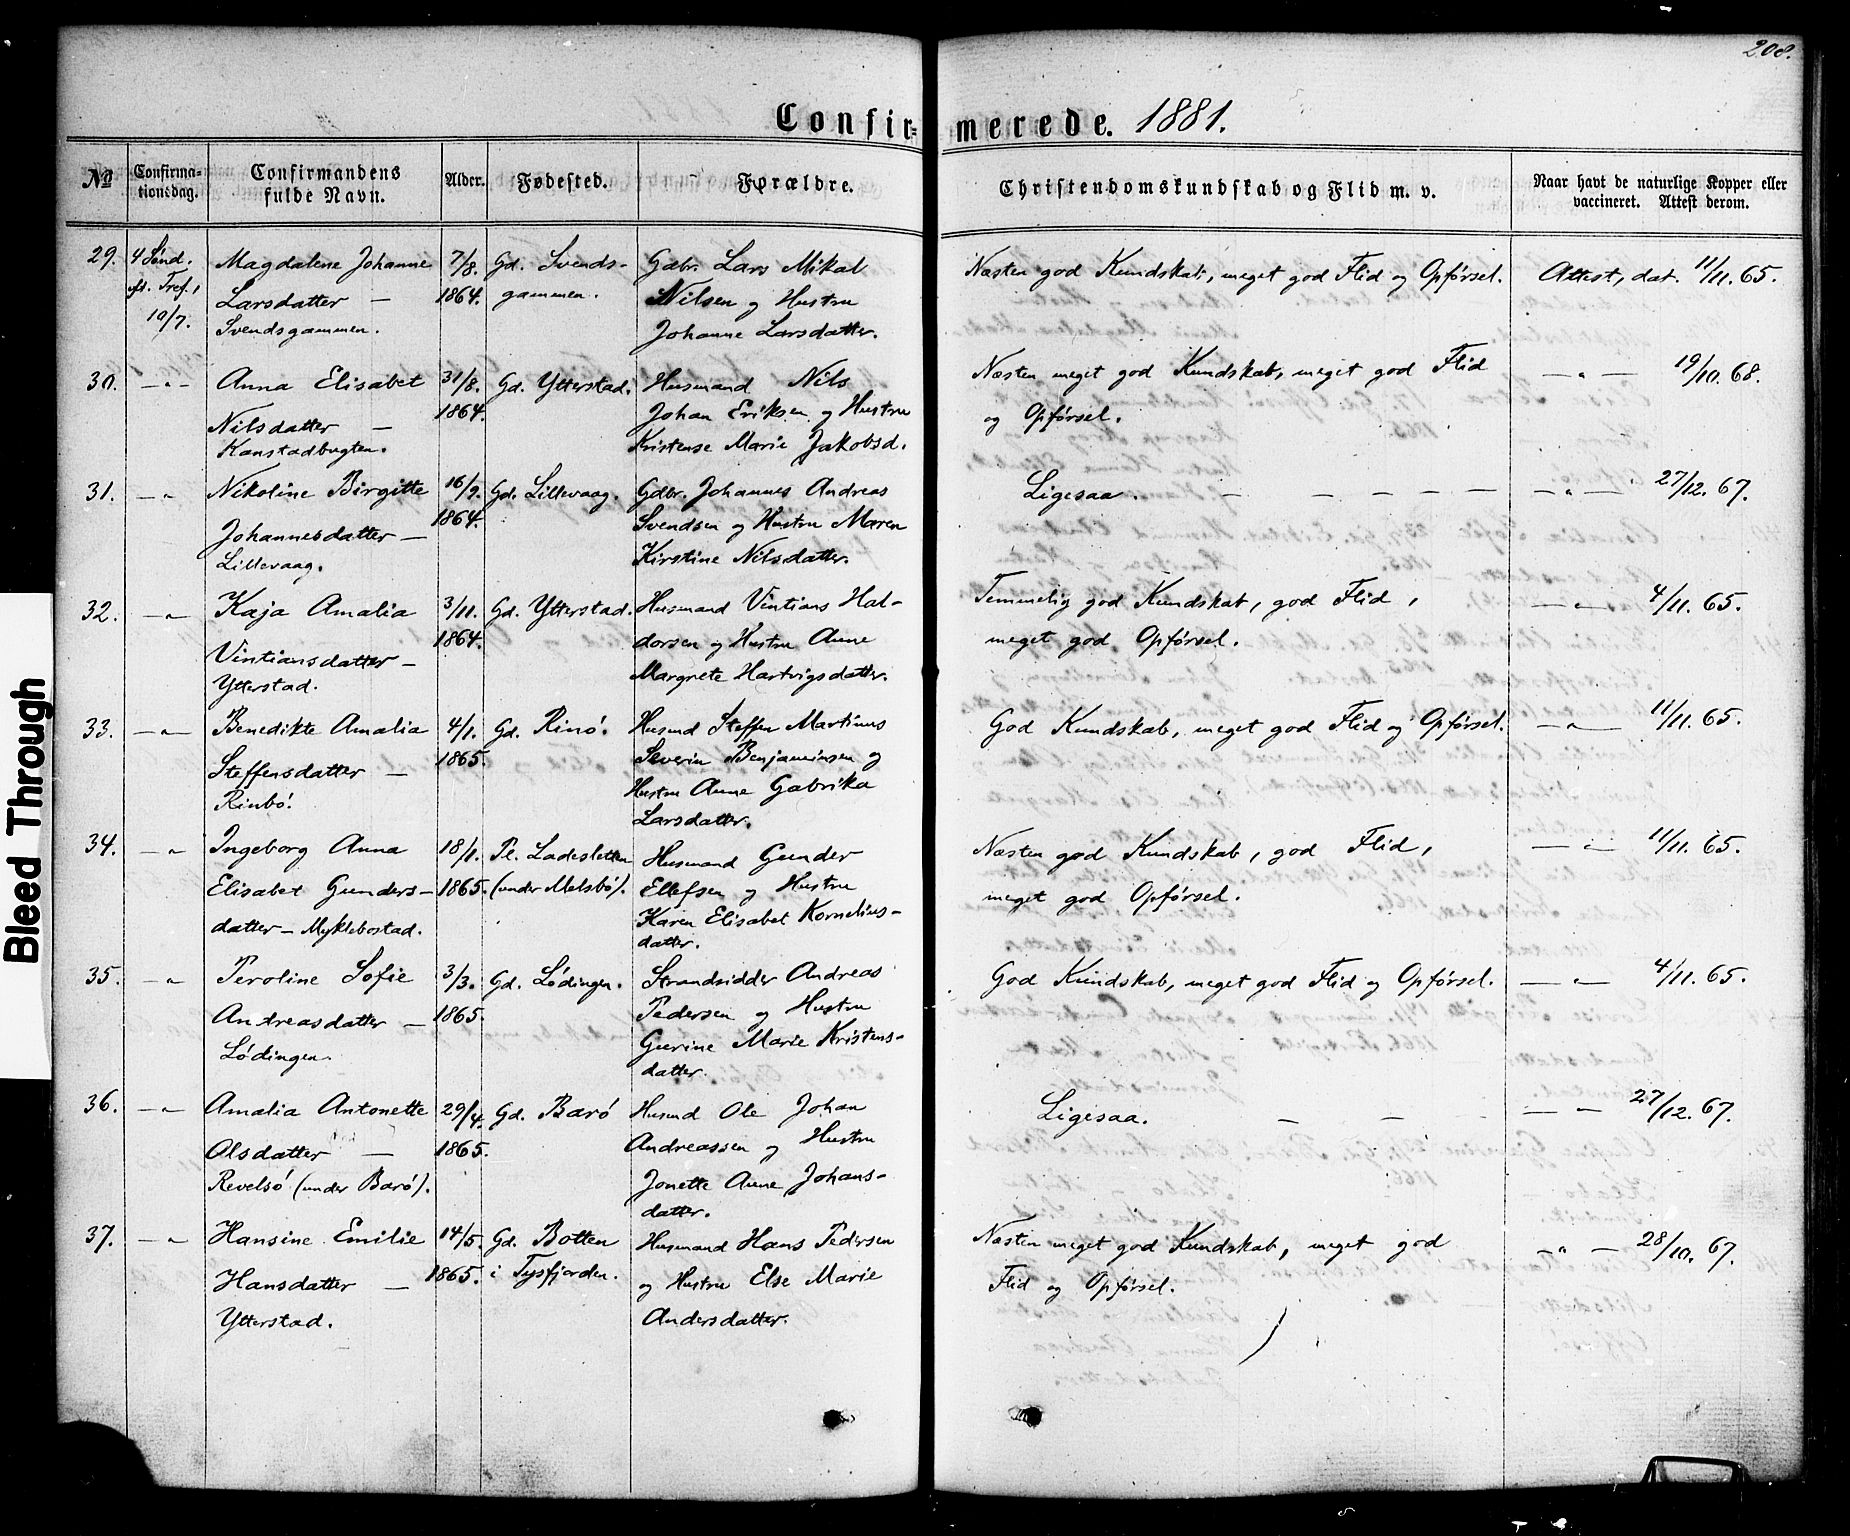 208.
Confirmerede. 1881.
No
Confirmationsdag.
Confirmandens fulde Navn.
Alder.
Fødested.
Forældre.
Christendomskundskab og Flid m. v.
Naar havt de naturlige Kopper eller vaccineret. Attest derom.
29. 4 Sønd. Magdalene Johanne 7/8. Gd. Svends- Gdbr. Lars Mikal Næsten god Kundskab, meget god Flid og Opførsel. Attest, dat. 11/11. 65.
eft. Tref., Larsdatter — 1864. gammen. Nilsen og Hustru
10/7. Svendsgammen. Johanne Larsdatter.
30. —"— Anna Elisabet 31/8. Gd. Ytterstad. Husmand Nils Næsten meget god Kundskab, meget god Flid —"— 19/10. 68.
Nilsdatter — 1864. Johan Eriksen og Hustru og Opførsel.
Kanstadbugten. Kristense Marie Jakobsd.
31. —"— Nikoline Birgitte 16/9. Gd. Lillevaag. Gdbr. Johannes Andreas Ligesaa. — — — — — —"— 27/12. 67.
Johannesdatter — 1864. Svendsen og Hustru Maren
Lillevaag. Kirstine Nilsdatter.
32. —"— Kaja Amalia 3/11. Gd. Ytterstad. Husmand Vintians Hal- Temmelig god Kundskab, god Flid, —"— 4/11. 65.
Vintiansdatter — 1864. dorsen og Hustru Anne meget god Opførsel.
Ytterstad. Margrete Hartvigsdatter.
33. —"— Benedikte Amalia 4/1. Gd. Rinø. Husmd Steffen Martinus God Kundskab, meget god Flid og Opførsel. —"— 11/11. 65.
Steffensdatter — 1865. Severin Benjaminsen og
Rinbø. Hustru Anne Gabrika
Larsdatter.
34. —"— Ingeborg Anna 18/1. Pl. Ladesletten Husmand Gunder Næsten god Kundskab, god Flid, —"— 11/11. 65.
Elisabet Gunders- 1865. (under Melsbø). Ellefsen og Hustru meget god Opførsel.
datter — Myklebostad. Karen Elisabet Kornelius-
datter.
35. —"— Peroline Sofie 3/3. Gd. Lødingen. Strandsidder Andreas God Kundskab, meget god Flid og Opførsel. —"— 4/11. 65.
Andreasdatter — 1865. Pedersen og Hustru
Lødingen. Gurine Marie Kristens-
datter.
36. —"— Amalia Antonette 29/4. Gd. Barø Husmd Ole Johan Ligesaa. — — —"— 27/12. 67.
Olsdatter — 1865. Andreassen og Hustru
Revelsø (under Barø). Jonette Anne Johans-
datter.
37. —"— Hansine Emilie 14/5. Gd. Botten Husmand Hans Pedersen Næsten meget god Kundskab, meget god —"— 28/10. 67.
Hansdatter — 1865. i Tysfjorden. og Hustru Else Marie Flid og Opførsel.
Ytterstad. Andersdatter.
Bleed Through